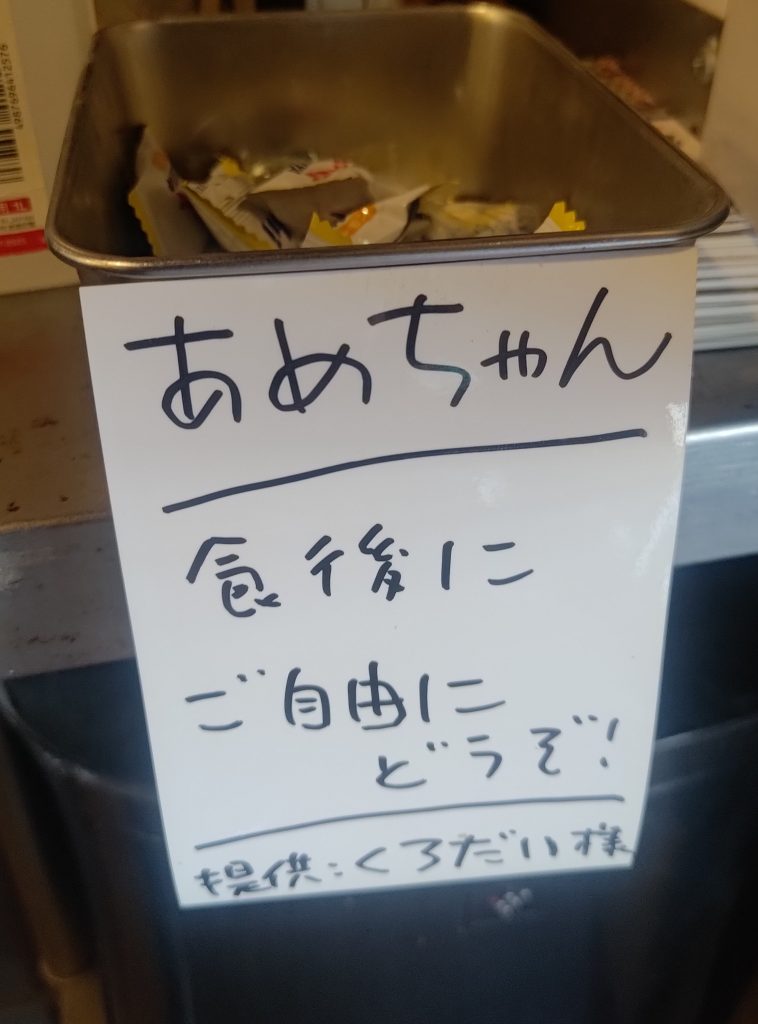 あめちゃん
食後に
ご自由に
どうぞ!
提供:くろだい様